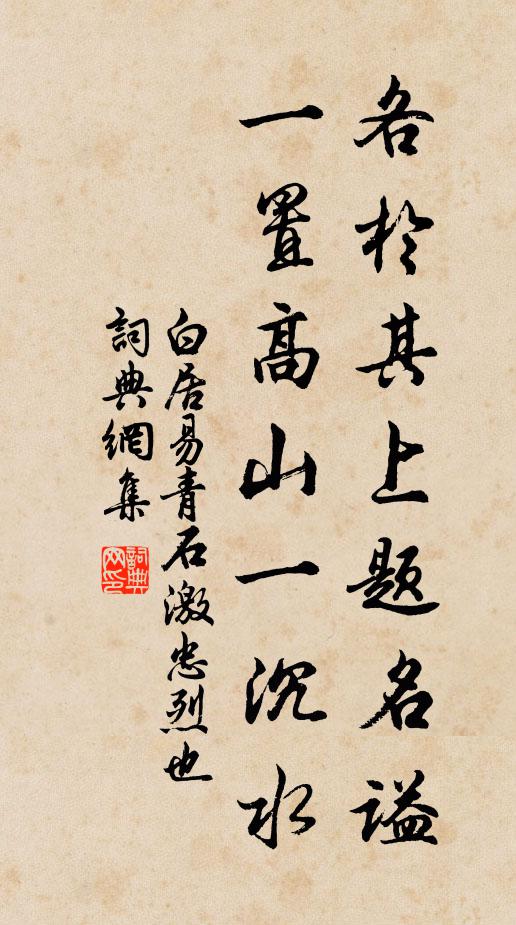 各於其上題名諡
一置高山一沉水
白居易青石激忠烈也
詞典網集
詞典
网印